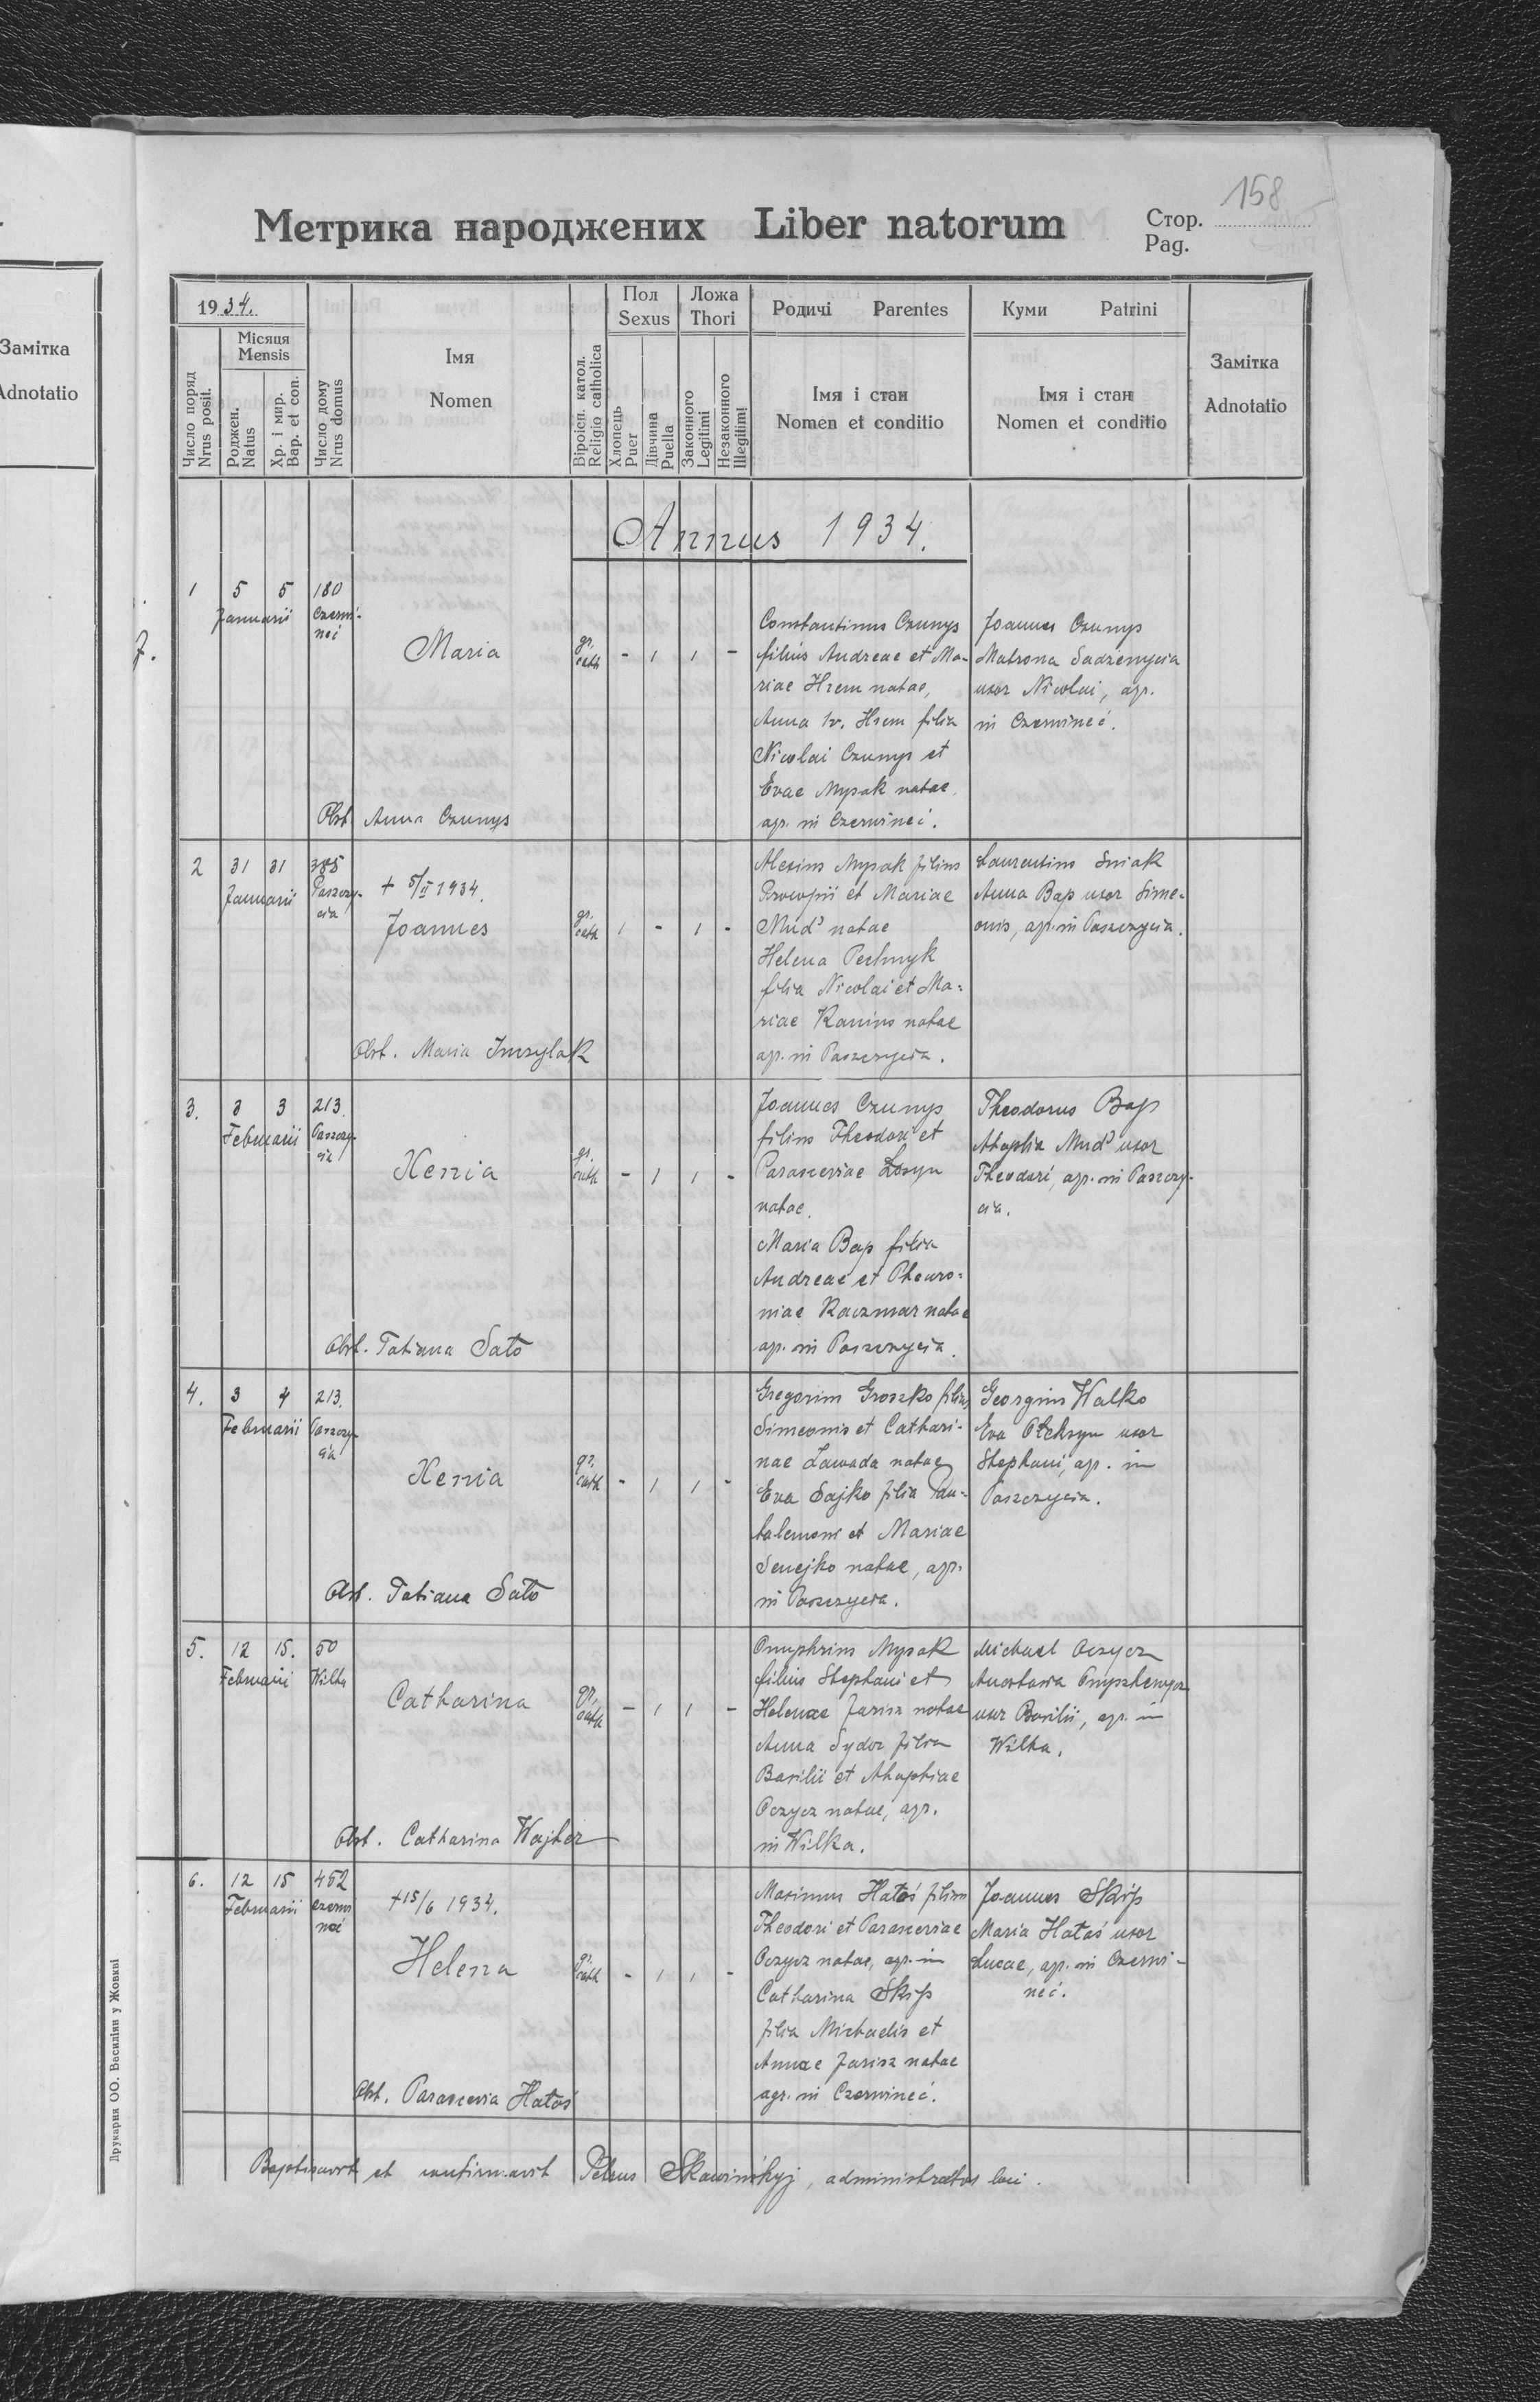 158
Метрика народжених Liber natorum
Стор.
Pag.
Замітка
Adnotatio
1934.
Місяця
Mensis
Число поряд
Nrus posit.
Роджен.
Natus
Хр. і мир.
Bap. et con.
Число дому
Nrus domus
Імя
Nomen
Віроісп. катол.
Religio catholica
Пол
Sexus
Хлопець
Puer
Дівчина
Puella
Ложа
Thori
Законного
Legitimi
Незаконного
Illegitimi
Родичі Parentes
Імя і стан
Nomen et conditio
Куми Patrini
Імя і стан
Nomen et conditio
Замітка
Adnotatio
Annus 1934.
1 5 5 180
Januarii Czerwi-
neć
Maria
gr.
cath
- 1 1 -
Constantinus Czunys
filius Andreae et Ma-
riae Hrem natae,
Anna 1v. Hrem filia
Nicolai Czunys et
Evae Mysak natae,
agr. in Czerwineć.
Joannes Czunys
Matrona Sadzenycia
uxor Nicolai, agr.
in Czerwineć.
Obst. Anna Czunys
2 31 31 385
Januarii Paszczy-
cia
+ 5/II 1934.
Joannes
gr.
cath
1 - 1 -
Alexius Mysak filius
Procopii et Mariae
Mud' natae
Helena Pechnyk
filia Nicolai et Ma-
riae Kanins natae
agr. in Paszczycia.
Laurentius Sniak
Anna Bap uxor Sime-
onis, agr. in Paszczycia.
Obst. Maria
3. 3 3 213.
Februarii Paszczy-
cia
Xenia
gr.
cath
- 1 1 -
Joannes Czunys
filius Theodori et
Parasceviae Losyn
natae.
Maria Bap filia
Andreae et Phewro-
niae Kaczmar natae
agr. in Paszczycia.
Theodorus Bap
Ahaphia Mud' uxor
Theodori, agr. in Paszczy-
cia.
Obst. Tatiana Sato
4. 3 4 213.
Februarii Paszczy-
cia
Xenia
gr.
cath
- 1 1 -
Gregorius Groszko filius
Simeonis et Cathari-
nae Zawada natae
Eva Sajko filia Pan-
talemoni et Mariae
Senejko natae, agr.
in Paszczycia.
Georgius Walko
Eva uxor
Stephani, agr. in
Paszczycia.
Obst. Tatiana Sato
5. 12 15. 50
Februarii Wilka
Catharina
gr.
cath
- 1 1 -
Onuphrius Mysak
filius Stephani et
Helenae Jarisz natae
Anna Sydor filia
Basilii et Ahaphiae
Oczycz natae, agr.
in Wilka.
Michael Oczycz
Anastasia
uxor Basilii, agr. in
Wilka.
Obst. Catharina Wajter
6. 12 15 452
Februarii Czerwi
neć
+15/6 1934.
Helena
gr.
cath
- 1 1 -
Maximus Hataś filius
Theodori et Parasceviae
Oczycz natae, agr. in
Catharina Skip
filia Michaelis et
Annae Jarisz natae
agr. in Czerwineć.
Joannes Skip
Maria Hataś uxor
Lucae, agr. in Czerwi-
neć.
Obst. Parascevia Hataś
Baptisavit et confirmavit Petrus Skawinśkyj, administrator loci.
Друкарня ОО. Василіян у Жовкві